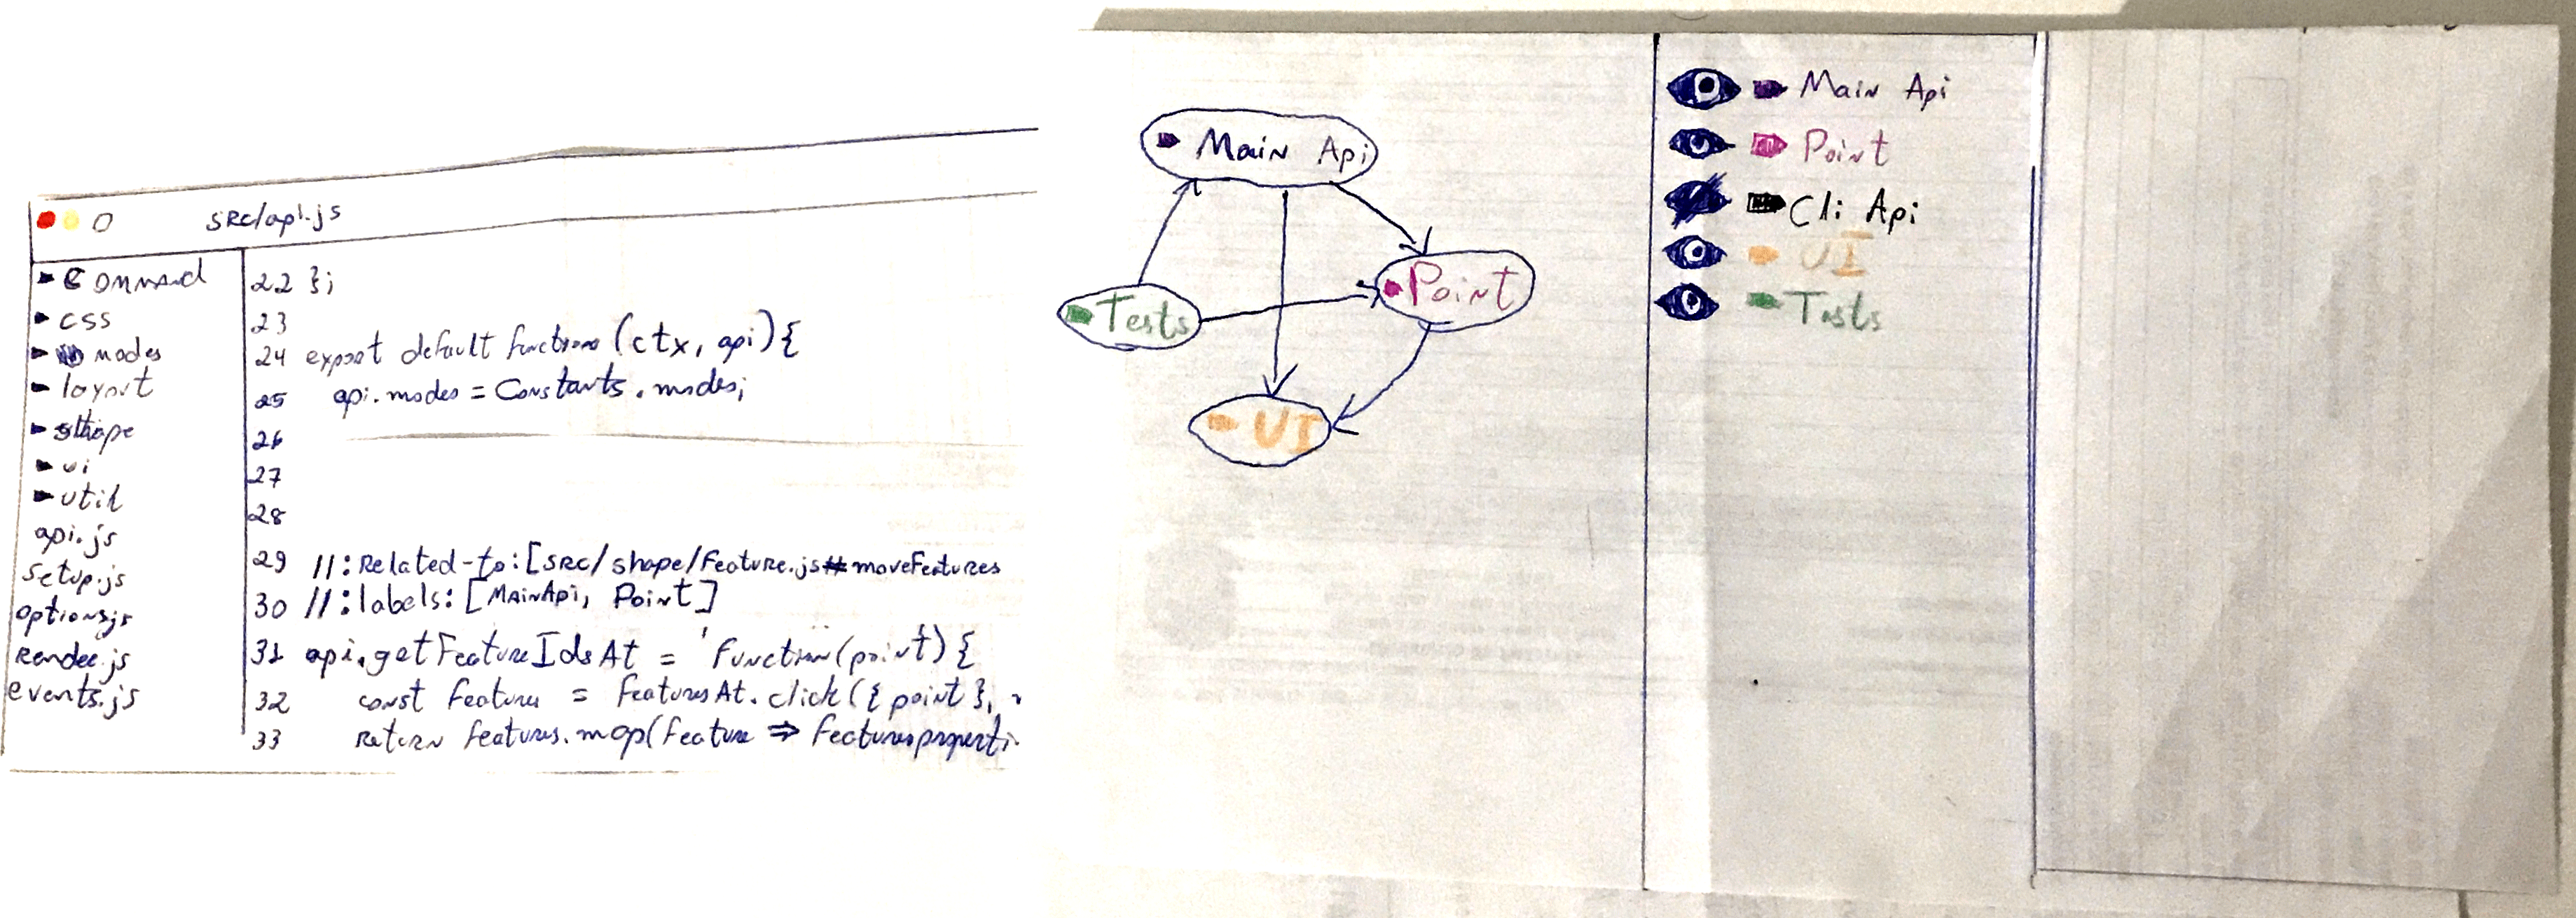 src/api.js
command
css
modes
layout
shape
ui
util
api.js
setup.js
options.js
render.js
events.js
22 };
23
24 export default function (ctx, api) {
25 api.modes = Constants.modes;
26
27
28
29 //:Related-to:[src/shape/feature.js#moveFeatures
30 //:labels:[MainApi, Point]
31 api.getFeatureIdsAt = function(point) {
32 const features = featuresAt.click({ point },
33 return features.map(feature => feature.properti
Main Api
Tests
Point
UI
Main Api
Point
Cli Api
UI
Tests